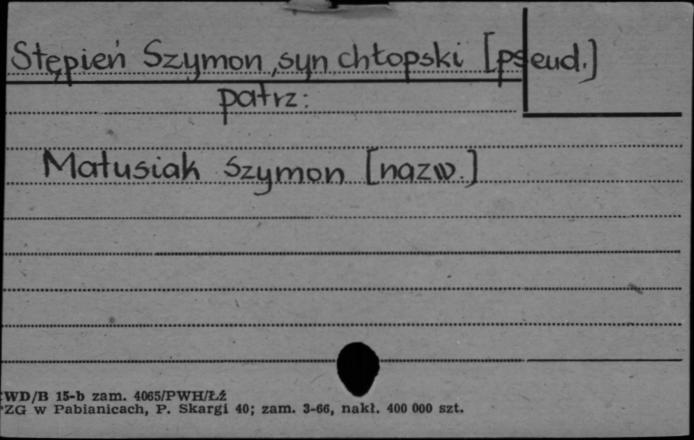 Stępień Szymon, syn chłopski [pseud.]
patrz:
Małusiak Szymon [nazw.]
WD/B 15-b zam. 4065/PWH/ŁŹ
ZG w Pabianicach, P. Skargi 40; zam. 3-66, nakł. 400 000 szt.